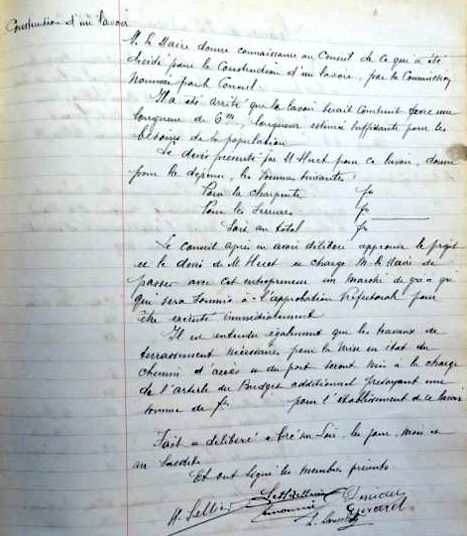 Construction d'un lavoir
M. le Maire donne connaissance au Conseil de ce qui a été
décidé pour la Construction d'un lavoir, par la Commission
Nommée par le Conseil.
Il a été arrêté que le lavoir serait Construit avec une
longueur de 6m, longueur estimée suffisante pour les
besoins de la population
Le devis présenté par M Huet pour ce lavoir, donne
pour la dépense, les sommes suivantes :
Pour la charpente fr
Pour les fr
Soit au total fr
Le Conseil après en avoir délibéré approuve le projet
et le devis de M Huet et charge M. le Maire de
passer avec cet entrepreneur un marché de gré à gré
qui sera soumis à l'approbation Préfectorale pour
être exécuté immédiatement
Il est entendu également que les travaux de
terrassement nécessaires pour la mise en état du
chemin d'accès et du port seront mis à la charge
de l'article du Budget additionnel prévoyant une
somme de fr pour l'établissement de ce lavoir
Fait et délibéré les jour, mois et
an susdits
Et ont signé les membres présents
H. Sellier